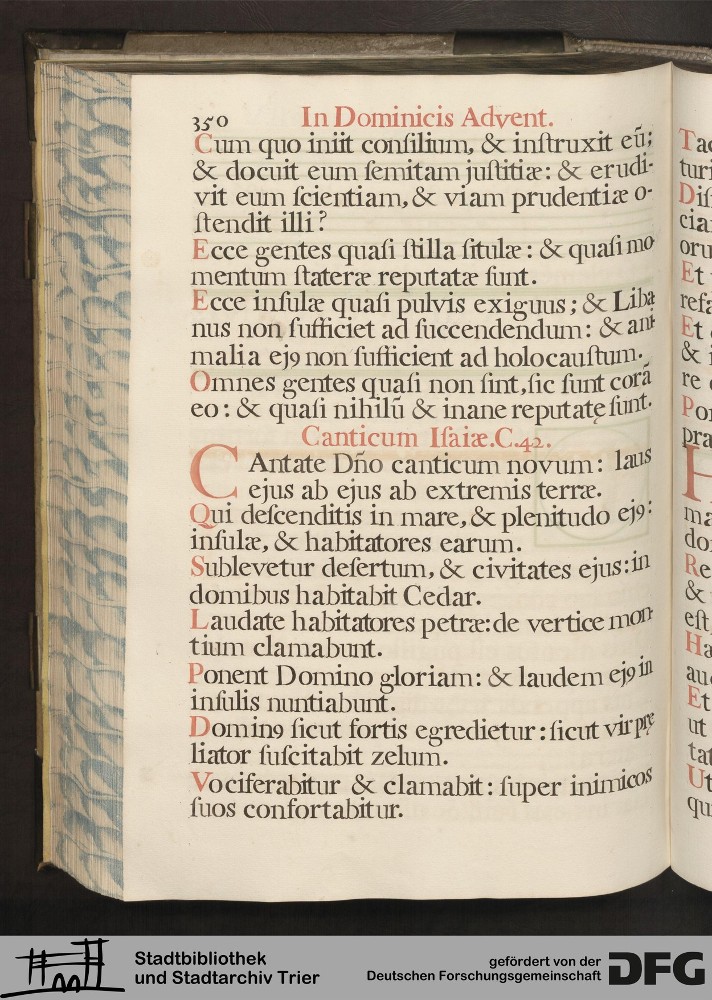 350 In Dominicis Advent.
Cum quo iniit conſilium, & inſtruxit eū;
& docuit eum ſemitam juſtitiæ: & erudi-
vit eum ſcientiam, & viam prudentiæ o-
ſtendit illi?
Ecce gentes quaſi ſtilla ſitulæ: & quaſi mo
mentum ſtateræ reputatæ ſunt.
Ecce inſulæ quaſi pulvis exiguus; & Liba
nus non ſufficiet ad ſuccendendum: & ani
malia ejꝰ non ſufficient ad holocauſtum.
Omnes gentes quaſi non ſint, ſic ſunt corā
eo: & quaſi nihilū & inane reputatę ſunt.
Canticum Iſaiæ. C. 42.
CAntate Dño canticum novum: laus
ejus ab ejus ab extremis terræ.
Qui deſcenditis in mare, & plenitudo ejꝰ:
inſulæ, & habitatores earum.
Sublevetur deſertum, & civitates ejus: in
domibus habitabit Cedar.
Laudate habitatores petræ: de vertice mon
tium clamabunt.
Ponent Domino gloriam: & laudem ejꝰ in
inſulis nuntiabunt.
Dominꝰ ſicut fortis egredietur: ſicut vir prę
liator ſuſcitabit zelum.
Vociferabitur & clamabit: ſuper inimicos
ſuos confortabitur.
Stadtbibliothek
und Stadtarchiv Trier
gefördert von der
Deutschen Forschungsgemeinschaft
DFG